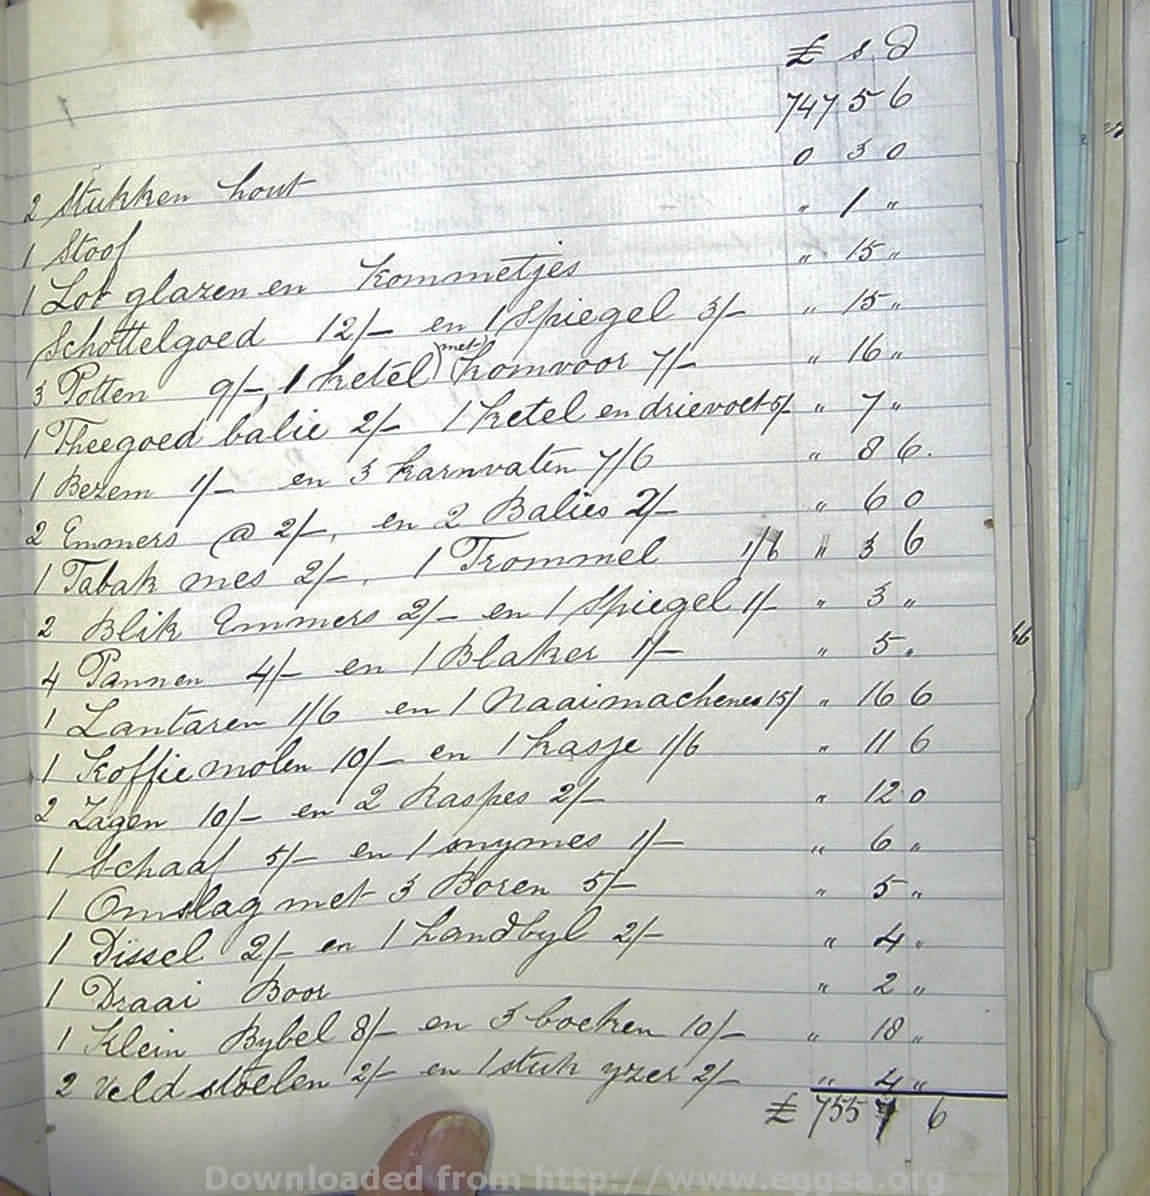 £ s. d
747 5 6
2 Stukken hout 0 3 0
1 Stoof " 1 "
1 Lot glazen en Kommetjes " 15 "
Schottelgoed 12/- en 1 Spiegel 3/- " 15 "
3 Potten 9/-, 1 Ketel (met) Komvoor 7/- " 16 "
1 Theegoed balie 2/- 1 Ketel en drievoet 5/- " 7 "
1 Bezem 1/- en 3 Karnvaten 7/6 " 8 6.
2 Emmers @ 2/-, en 2 Balies 2/- " 6 0
1 Tabak mes 2/-. 1 Trommel 1/6 " 3 6
2 Blik Emmers 2/- en 1 Spiegel 1/- " 3 "
4 Pannen 4/- en 1 Blaker 1/- " 5 "
1 Lantaren 1/6 en 1 Naaimachenes 15/ " 16 6
1 Koffie molen 10/- en 1 kasje 1/6 " 11 6
2 Zagen 10/- en 2 Raspes 2/- " 12 0
1 Schaaf 5/- en 1 snymes 1/- " 6 "
1 Omslag met 3 Boren 5/- " 5 "
1 Dissel 2/- en 1 handbyl 2/- " 4 "
1 Draai Boor " 2 "
1 Klein Bybel 8/- en 3 boeken 10/- " 18 "
2 Veld stoelen 2/- en 1 stuk yzer 2/- " 4 "
£ 755 7 6
Downloaded from http://www.eggsa.org